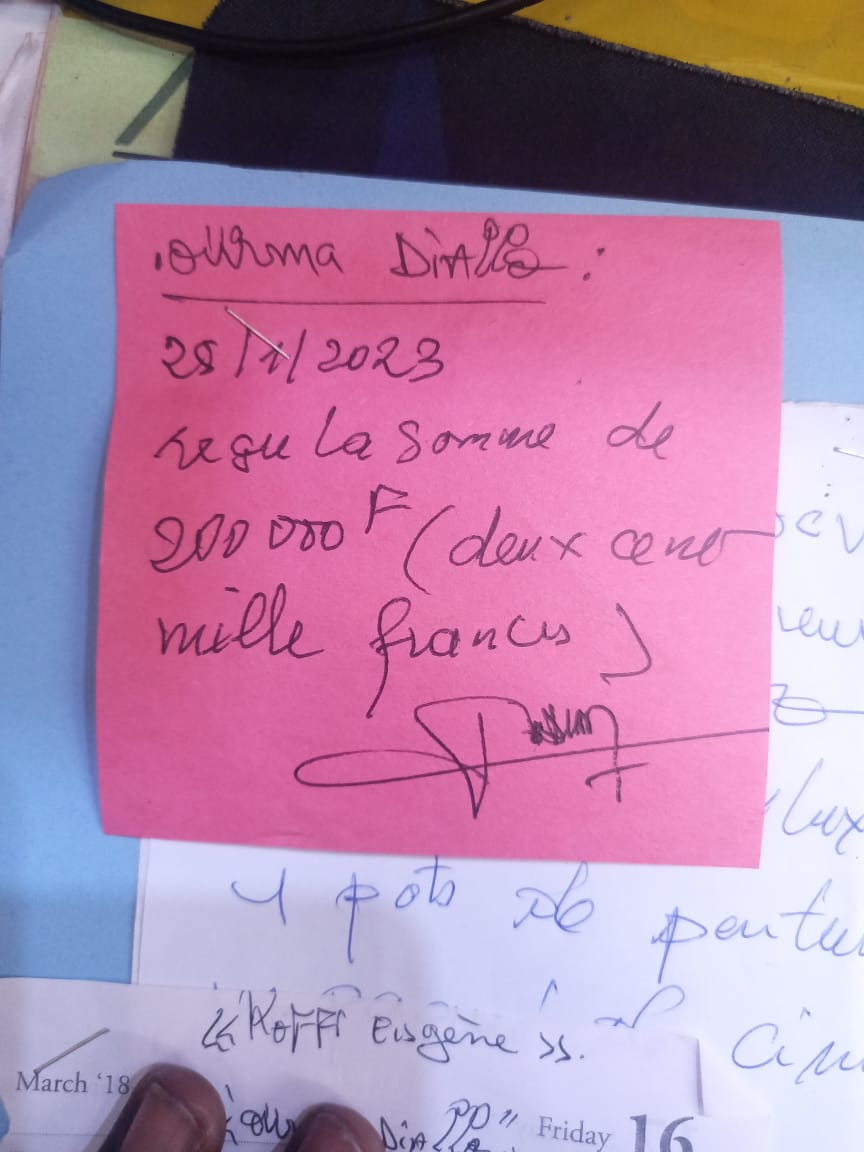 Ourma Diallo :
28/1/2023
reçu la somme de
200 000 F (deux cent
mille francs)
4 pots de peintu
"Koffi Eugène".
March '18
Diallo"
Friday 16